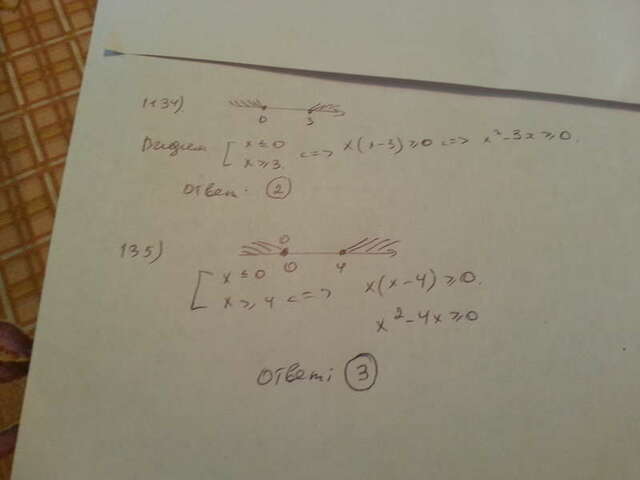 1134)
0 3
Видим [ x ≤ 0 x ≥ 3. <=> x(x-3) ≥ 0 <=> x² - 3x ≥ 0.
Ответ: 2
135)
0
0 4
[ x ≤ 0 x ≥ 4 <=> x(x-4) ≥ 0.
x² - 4x ≥ 0
Ответ: 3